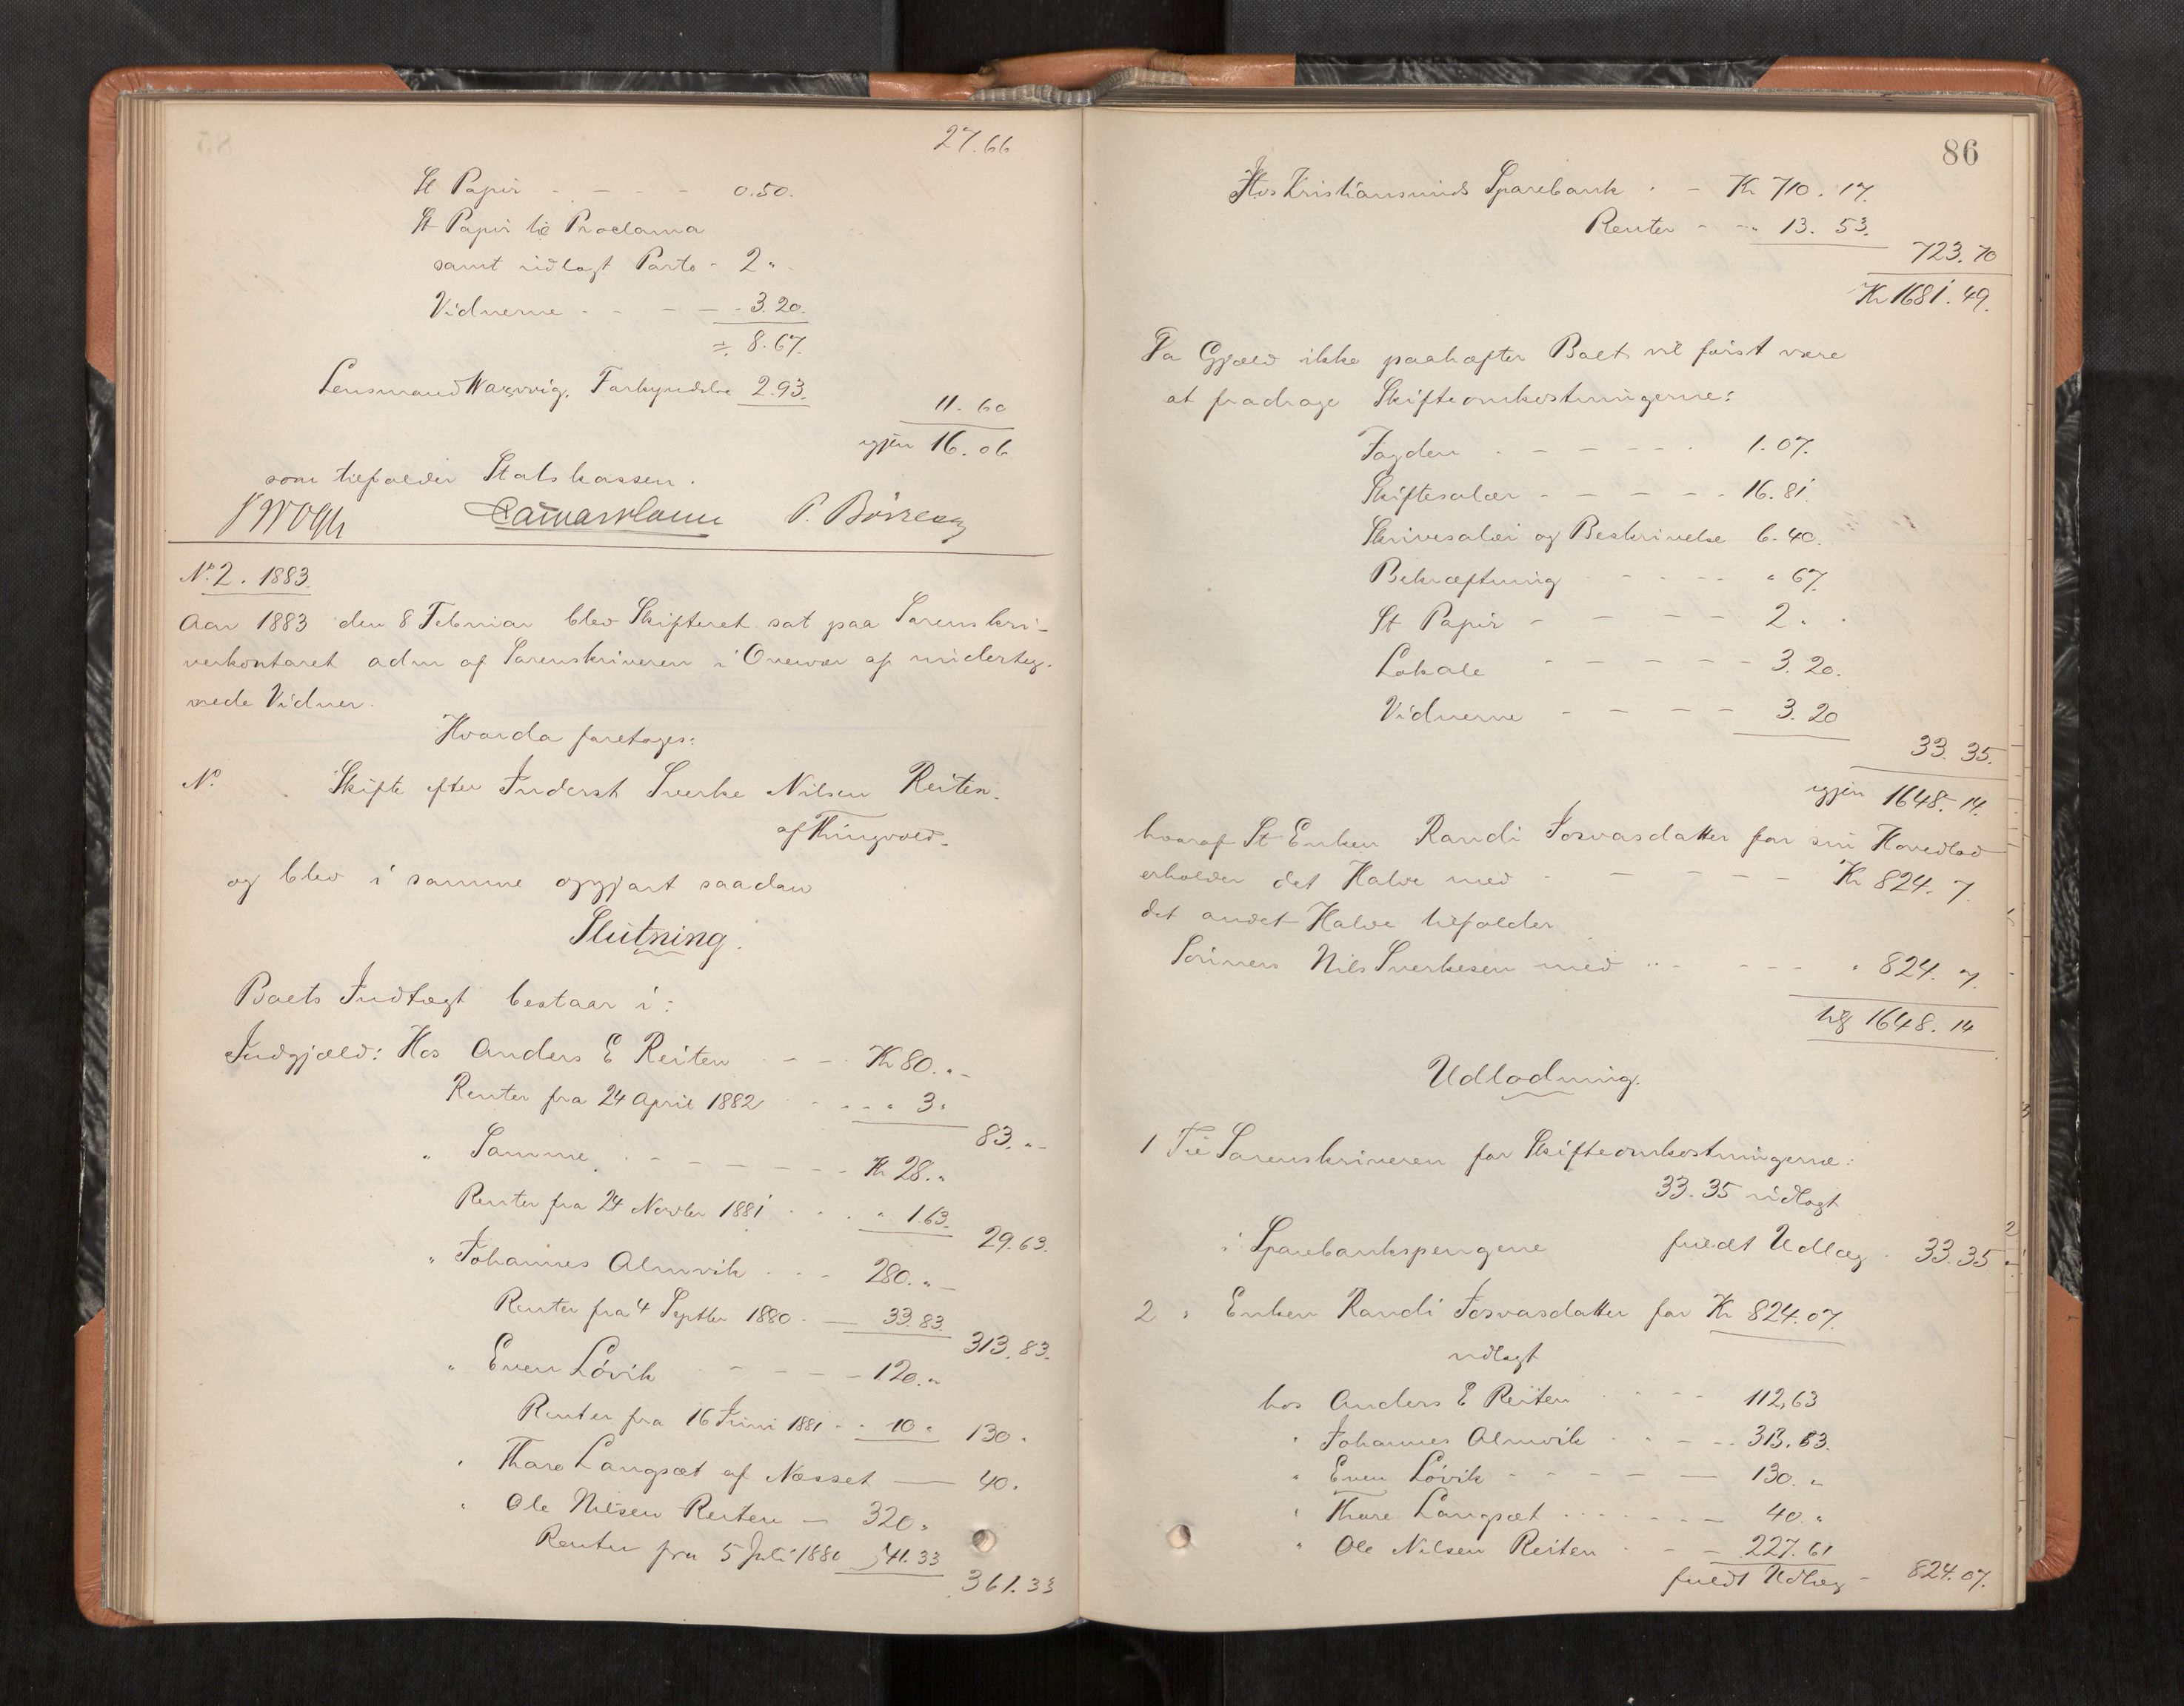 27.66
St Papir - - - - 0.50.
St Papir til Proclama
samt udlagt Porto - 2 "
Vidnerne - - - - 3.20.
÷ 8.67.
Lensmand Forkyndelse 2.93.
11.60
igjen 16.06
som tilfalder Statskassen.
P. Bøe
No. 2. 1883.
Aar 1883 den 8 Februar blev Skifteret sat paa Sorenskri-
verkontoret adm af Sorenskriveren i Overvær af underteg-
nede Vidner.
Hvorda foretoges:
No. Skifte efter Inderst Sverke Nilsen Reiten
af Thingvold.
og blev i samme opgjort saadan
Slutning.
Boets Indtægt bestaar i:
Indgjæld: Hos Anders E Reiten - - - Kr 80. " -
Renter fra 24 April 1882 - - - " 3 "
83. " -
" Samme - - - - - - - Kr 28. "
Renter fra 24 Novbr 1881 - - - " 1.63.
29.63.
" Johannes Almvik - - - 280. " -
Renter fra 4 Septbr 1880 - — 33.83.
313.83.
" Even Løvik - - - - - 120. "
Renter fra 16 Juni 1881 - - 10 " 130 "
" Thore Langsæt af Næsset — 40 "
" Ole Nilsen Reiten — 320 "
Renter fra 5 Juli 1880 41.33
361.33
86
Hos Kristiansunds Sparebank - - Kr 710.17.
Renter - - " 13.53.
723.70
Kr 1681.49.
Da Gjæld ikke paahæfter Boet vil først være
at fradrage Skifteomkostningerne:
Fogden - - - - - - 1.07.
Skiftesalær - - - - - 16.81.
Skrivesalær og Beskrivelse 6.40.
Bekræftning - - - - " 67.
St Papir - - - - 2. "
Lokale - - - - - - 3.20.
Vidnerne - - - - - 3.20
33.35.
igjen 1648.14.
hvoraf Enken Randi Josvasdatter for sin Hovedlod
erholder det Halve med - - - - - Kr 824.7.
det andet Halve tilfalder
Sønnen Nils Sverkesen med - - - - - " 824.7.
1648.14
Udlodning.
1 Til Sorenskriveren for Skifteomkostningerne:
33.35 udlagt
i Sparebankspengene fuldt Udlæg - 33.35
2 " Enken Randi Josvasdatter for Kr 824.07.
udlagt
hos Anders E Reiten - - - - 112,63
" Johannes Almvik - - - - 313.83.
" Even Løvik - - - - - — 130. "
" Thore Langsæt - - - - - — 40. "
" Ole Nilsen Reiten - - — 227.61
fuldt Udlæg - 824.07.